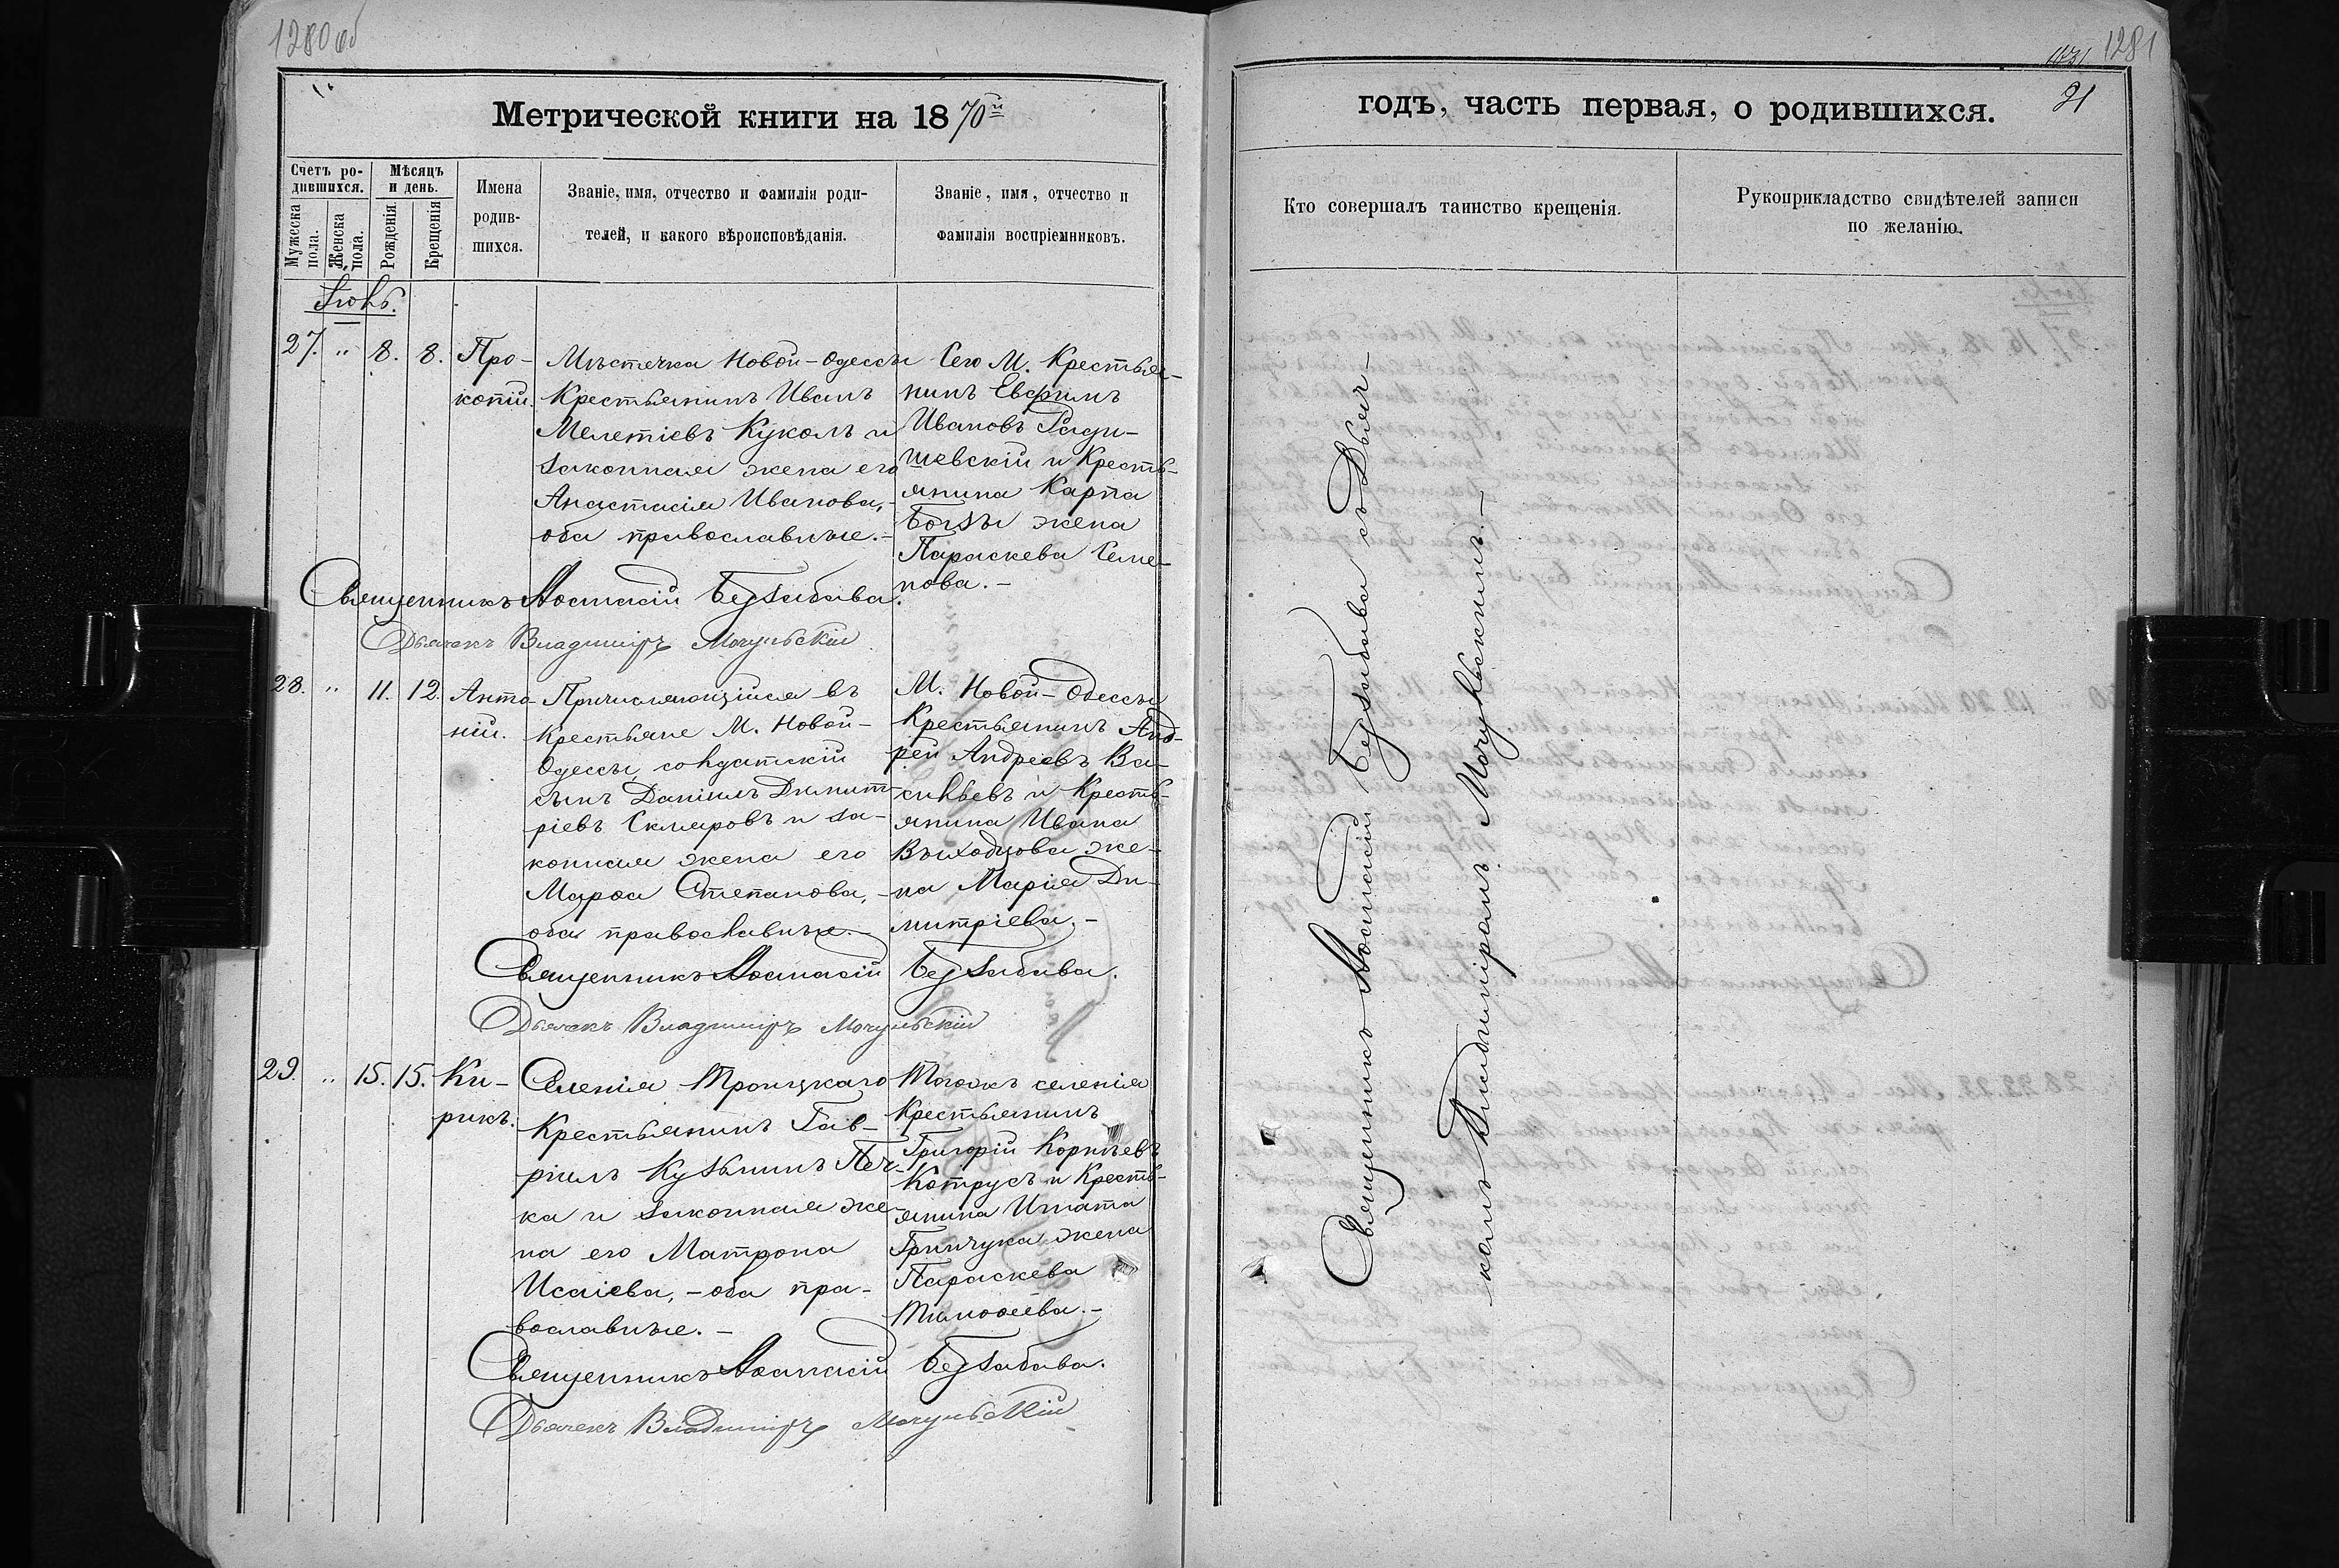 1280об
Метрической книги на 1870й
Счетъ ро-
дившихся.
Мужеска
пола.
Женска
пола.
Мѣсяцъ
и день.
Рожденія.
Крещенія
Имена
родив-
шихся.
Званіе, имя, отчество и фамилія роди-
телей, и какого вѣроисповѣданія.
Званіе, имя, отчество и
фамилія воспріемниковъ.
Іюль.
27. " 8. 8.
Про-
копій.
Мѣстечка Новой-Одессы
Крестьянинъ Иванъ
Мелетіевъ Куколъ и
законная жена его
Анастасія Иванова,-
оба православные.-
Сего М. Крестья-
нинъ Евфимъ
Ивановъ Ради-
шевскій и Кресть-
янина Карпа
Богзы жена
Параскева Семе-
нова.-
Священникъ Аѳанасій Беззабава.
Дьячекъ Владиміръ Мочульскій
28. " 11. 12.
Анто-
ній.
Причисляющійся въ
Крестьяне М. Новой-
Одессы, солдатскій
сынъ Даніилъ Димит-
ріевъ Скляровъ и за-
конная жена его
Марѳа Степанова,-
оба православные.-
М. Новой-Одессы
Крестьянинъ Анд-
рей Андреевъ Ва-
сильевъ и Кресть-
янина Ивана
Выходцова же-
на Марія Ди-
митріева.-
Священникъ Аѳанасій Беззабава.
Дьячекъ Владиміръ Мочульскій
29. " 15. 15.
Ки-
рикъ.
Селенія Троицкаго
Крестьянинъ Гав-
ріилъ Кузьминъ Печ-
ка и законная же-
на его Матрона
Исаіева,-оба пра-
вославные.-
Тогожъ селенія
Крестьянинъ
Григорій Корнѣевъ
Котрусъ и Кресть-
янина Игната
Гринчука жена
Параскева
Тимоѳеева.-
Священникъ Аѳанасій Беззабава.
Дьячекъ Владиміръ Мочульскій
1281
21
годъ, часть первая, о родившихся.
Кто совершалъ таинство крещенія.
Рукоприкладство свидѣтелей записи
по желанію.
Священникъ Аѳанасій Беззабава съ Дьяч-
комъ Владиміромъ Мочульскимъ.-